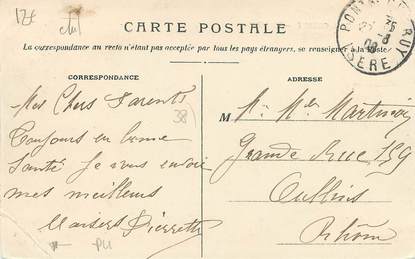 12€
CARTE POSTALE
La correspondance au recto n'étant pas acceptée par tous les pays étrangers, se renseigner à la Poste
PONT RUY
ISERE
CORRESPONDANCE
Mes Chers Parents
38
Toujours en bonne
Santé Je vous envoie
mes meilleurs
Baisers Pierrette
ADRESSE
M Mr Mme Martinais
Grande Rue 159
Oullins
Rhône